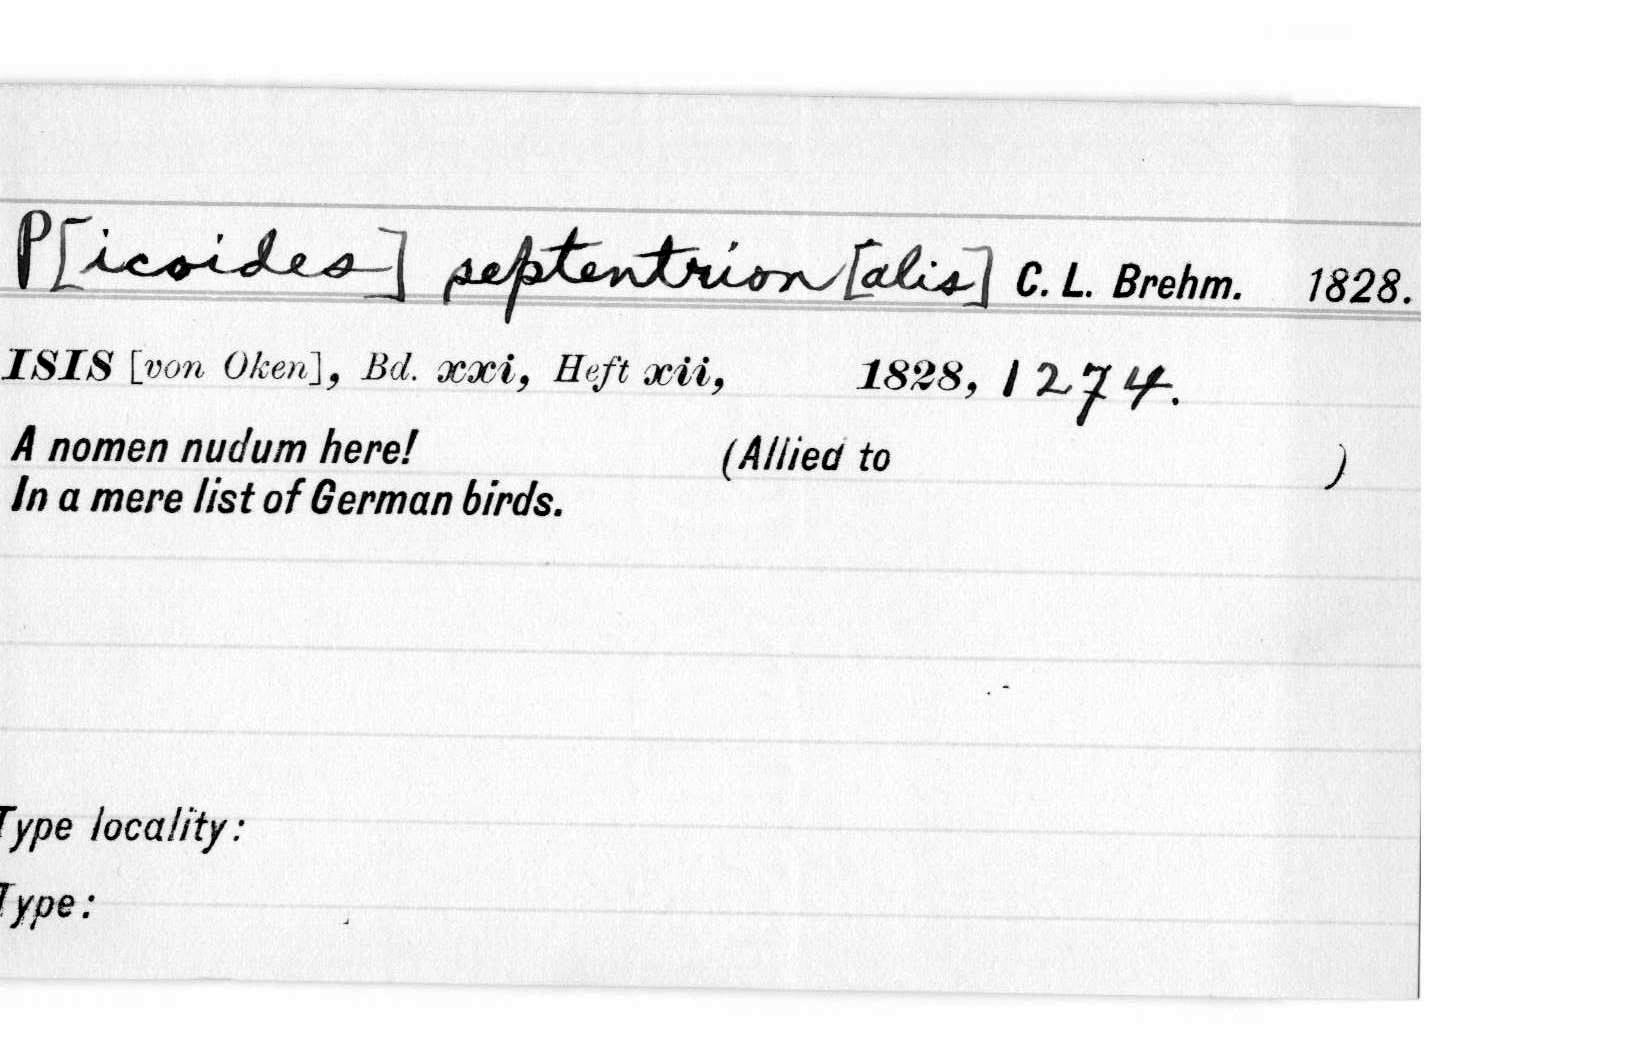 P[icoides] septentrion[alis] C. L. Brehm. 1828.
ISIS [von Oken], Bd. xxi, Heft xii, 1828, 1274.
A nomen nudum here! (Allied to )
In a mere list of German birds.
Type locality:
Type: